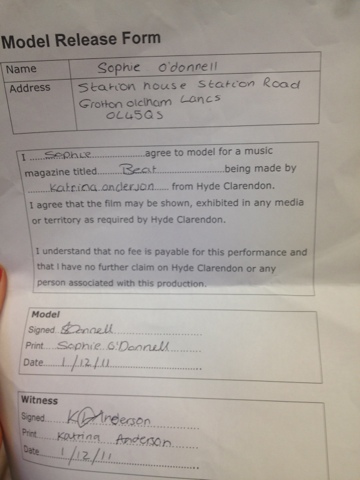 Model Release Form
Name Sophie O'donnell
Address Station house Station Road
Grotton oldham Lancs
OL45QS
I Sophie agree to model for a music
magazine titled Beat being made by
Katrina anderson from Hyde Clarendon.
I agree that the film may be shown, exhibited in any media
or territory as required by Hyde Clarendon.
I understand that no fee is payable for this performance and
that I have no further claim on Hyde Clarendon or any
person associated with this production.
Model
Signed SODonnell
Print Sophie O'Donnell
Date 1/12/11
Witness
Signed K Anderson
Print Katrina Anderson
Date 1/12/11